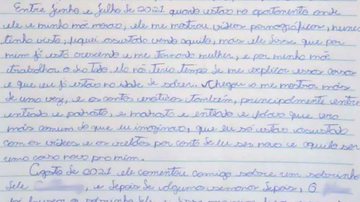 Entre junho e julho de 2021 quando estava no apartamento onde
ele e minha mãe mora, ele me mostrou vídeos pornográficos, nunca
tinha visto, fiquei assustada vendo aquilo, mas ele disse que por
mim já está crescendo e me tornando mulher, e por minha mãe
trabalhar o dia todo ela não teria tempo de me explicar essas coisas
e que eu já estava na idade de saber. Chegou a me mostrar mais
de uma vez, e os contos eróticos também, principalmente entre
enteada e padrasto, e e enteada e falava que era
mais comum do que eu imaginava, que eu só estava assustada
com os vídeos e os relatos por conta de eu ser nova e aquilo ser
uma coisa nova pra mim.
Agosto de 2021 ele comentou comigo sobre um sobrinho
dele , e depois de algumas semanas depois, O